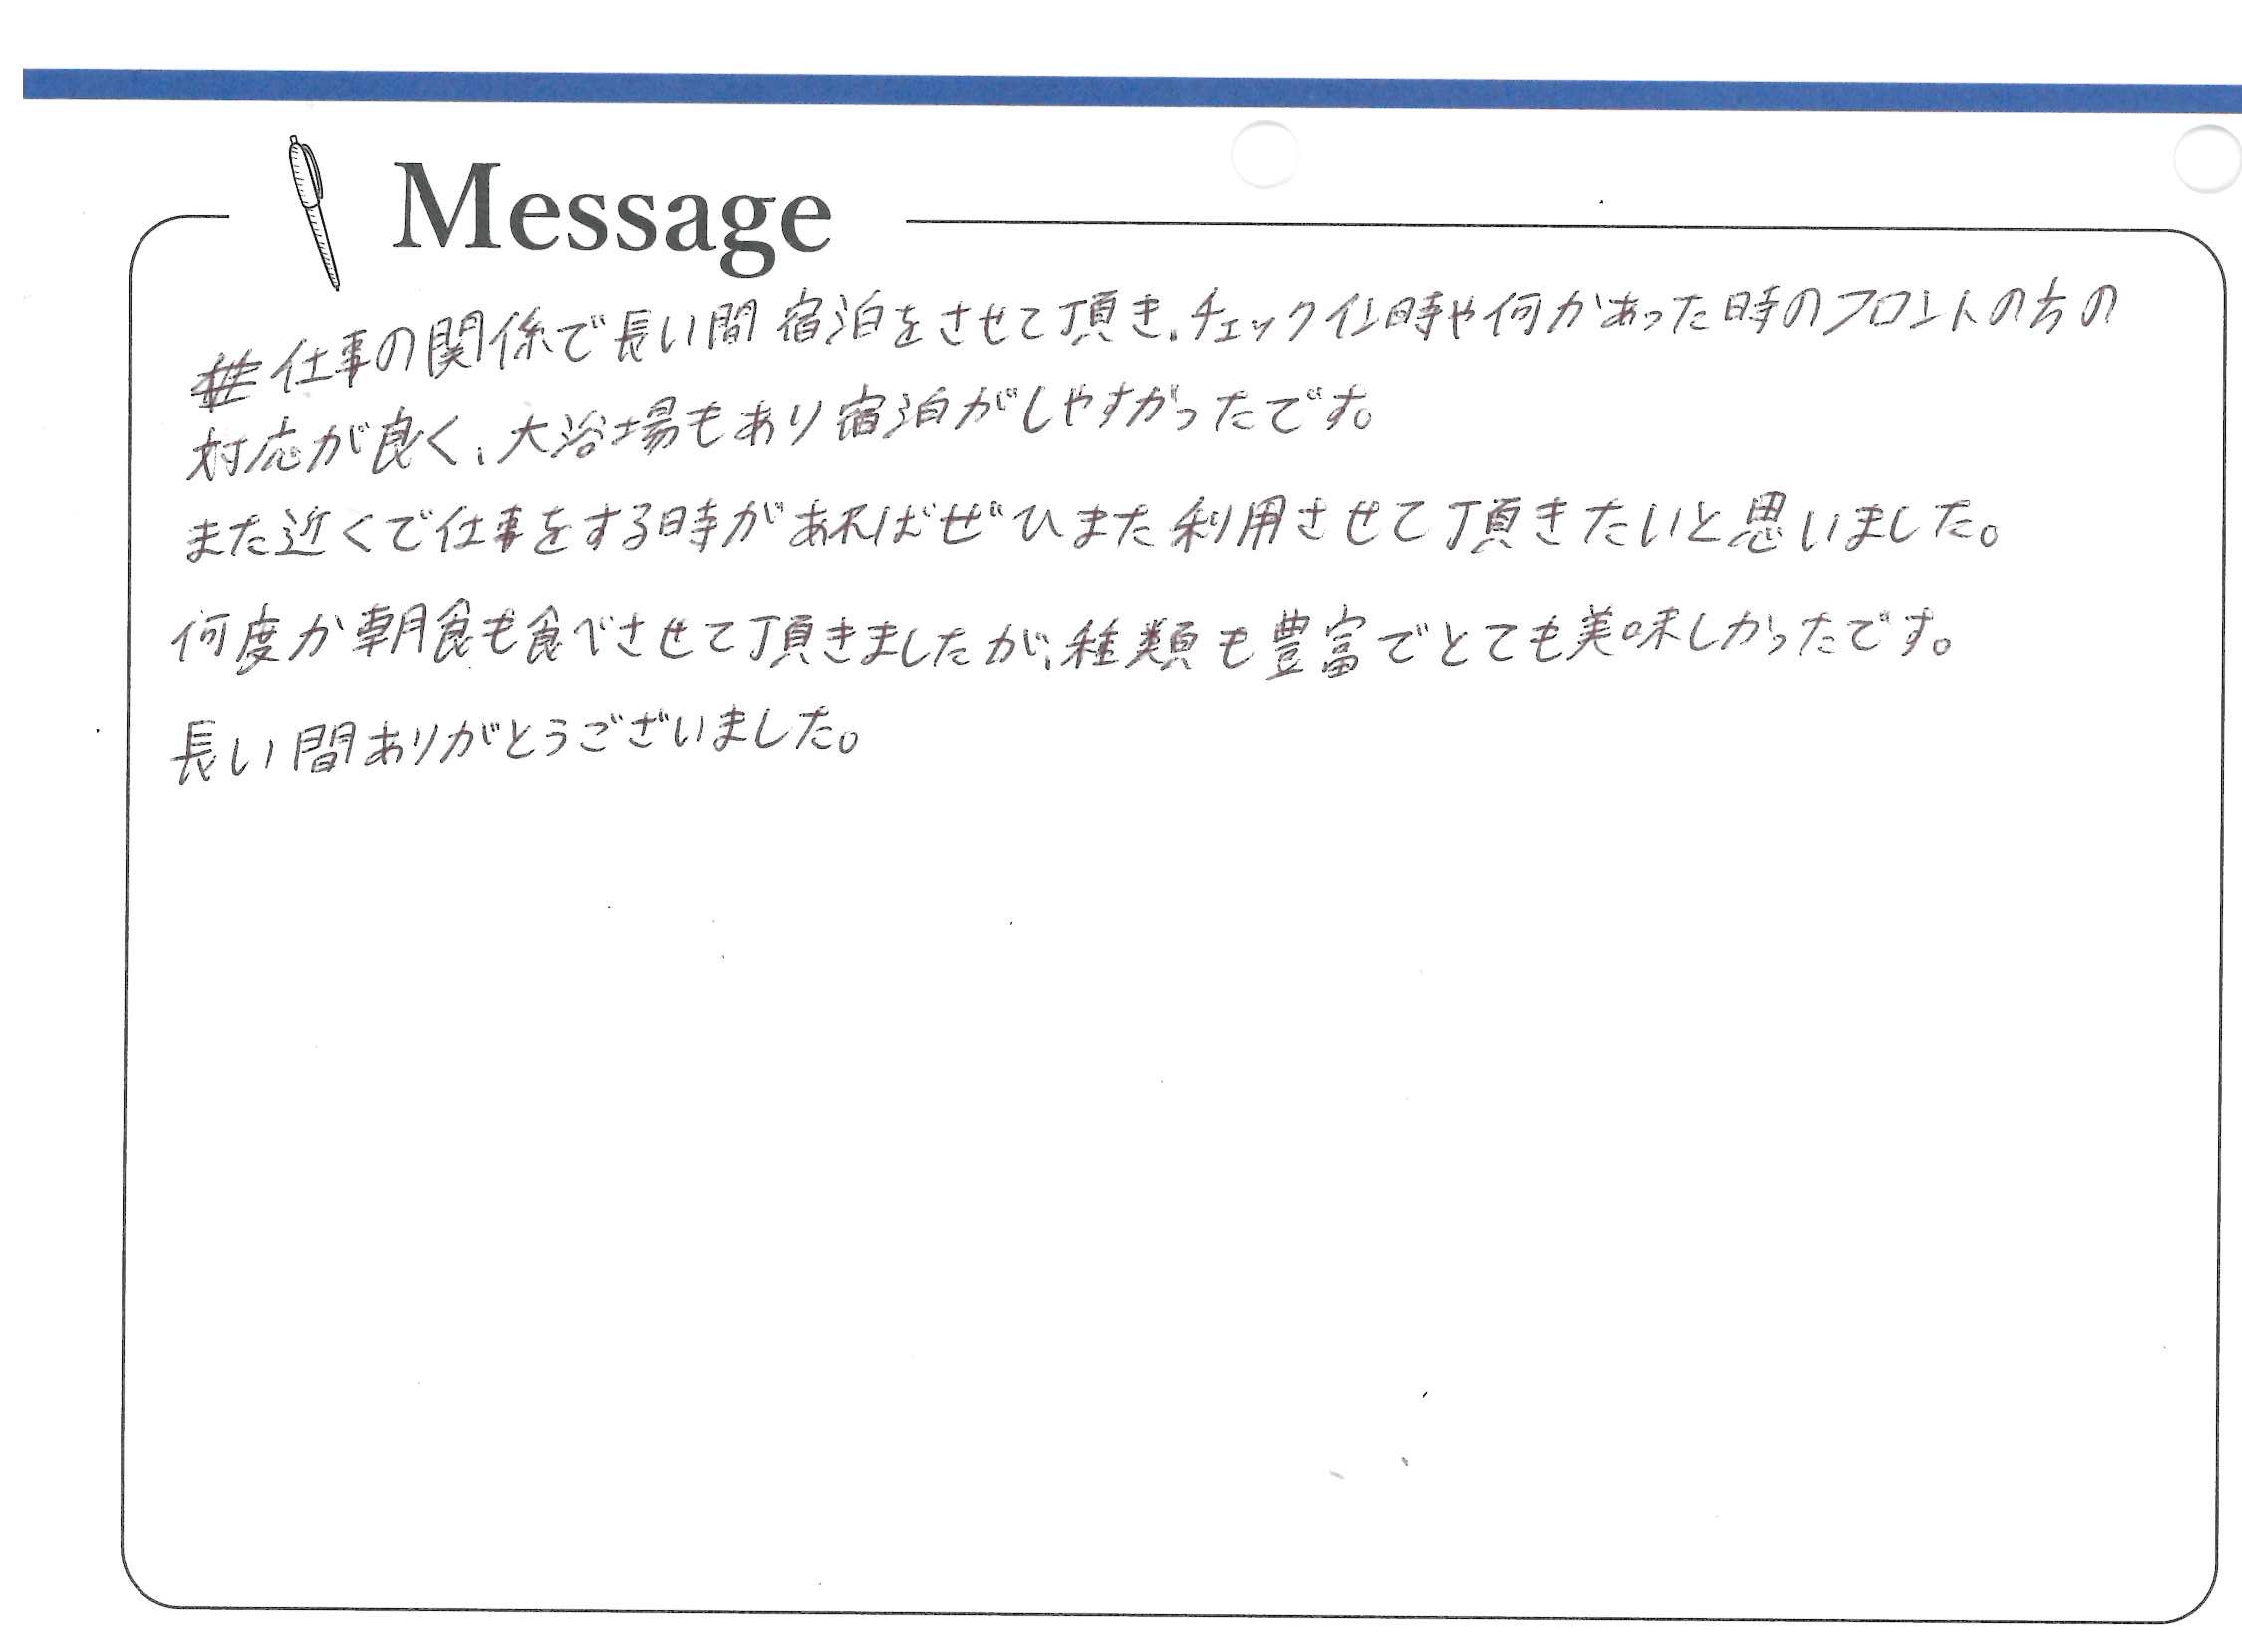 Message
仕事の関係で長い間宿泊をさせて頂き、チェックイン時や何かあった時のフロントの方の
対応が良く、大浴場もあり宿泊がしやすかったです。
また近くで仕事をする時があればぜひまた利用させて頂きたいと思いました。
何度か朝食も食べさせて頂きましたが、種類も豊富でとても美味しかったです。
長い間ありがとうございました。